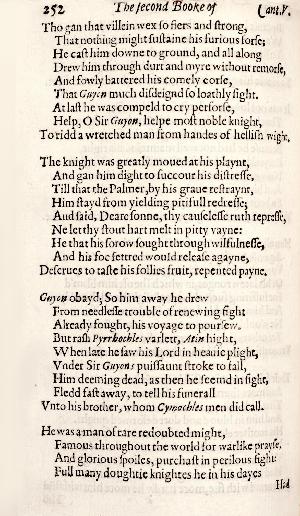 252
The second Booke of
Cant.V.
Tho gan that villein wex so fiers and strong,
That nothing might sustaine his furious forse;
He cast him downe to ground, and all along
Drew him through durt and myre without remorse,
And fowly battered his comely corse,
That Guyon much disdeignd so loathly sight.
At last he was compeld to cry perforse,
Help, O Sir Guyon, helpe most noble knight,
To ridd a wretched man from handes of hellish wight.
The knight was greatly moued at his playnt,
And gan him dight to succour his distresse,
Till that the Palmer, by his graue restraynt,
Him stayd from yielding pitifull redresse;
And said, Deare sonne, thy causelesse ruth represse,
Ne let thy stout hart melt in pitty vayne:
He that his sorow sought through wilfulnesse,
And his foe fettred would release agayne,
Deserues to taste his follies fruit, repented payne.
Guyon obayd; So him away he drew
From needlesse trouble of renewing fight
Already fought, his voyage to poursew.
But rash Pyrrhochles varlett, Atin hight,
When late he saw his Lord in heauie plight,
Vnder Sir Guyons puissaunt stroke to fall,
Him deeming dead, as then he seemd in sight,
Fledd fast away, to tell his funerall
Vnto his brother, whom Cymochles men did call.
He was a man of rare redoubted might,
Famous throughout the world for warlike prayse,
And glorious spoiles, purchast in perilous fight:
Full many doughtie knightes he in his dayes
Had